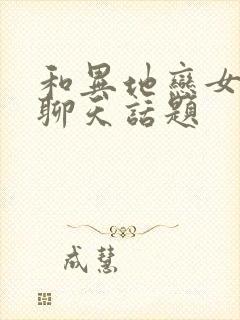 和異地戀女
聊天話題
成慧